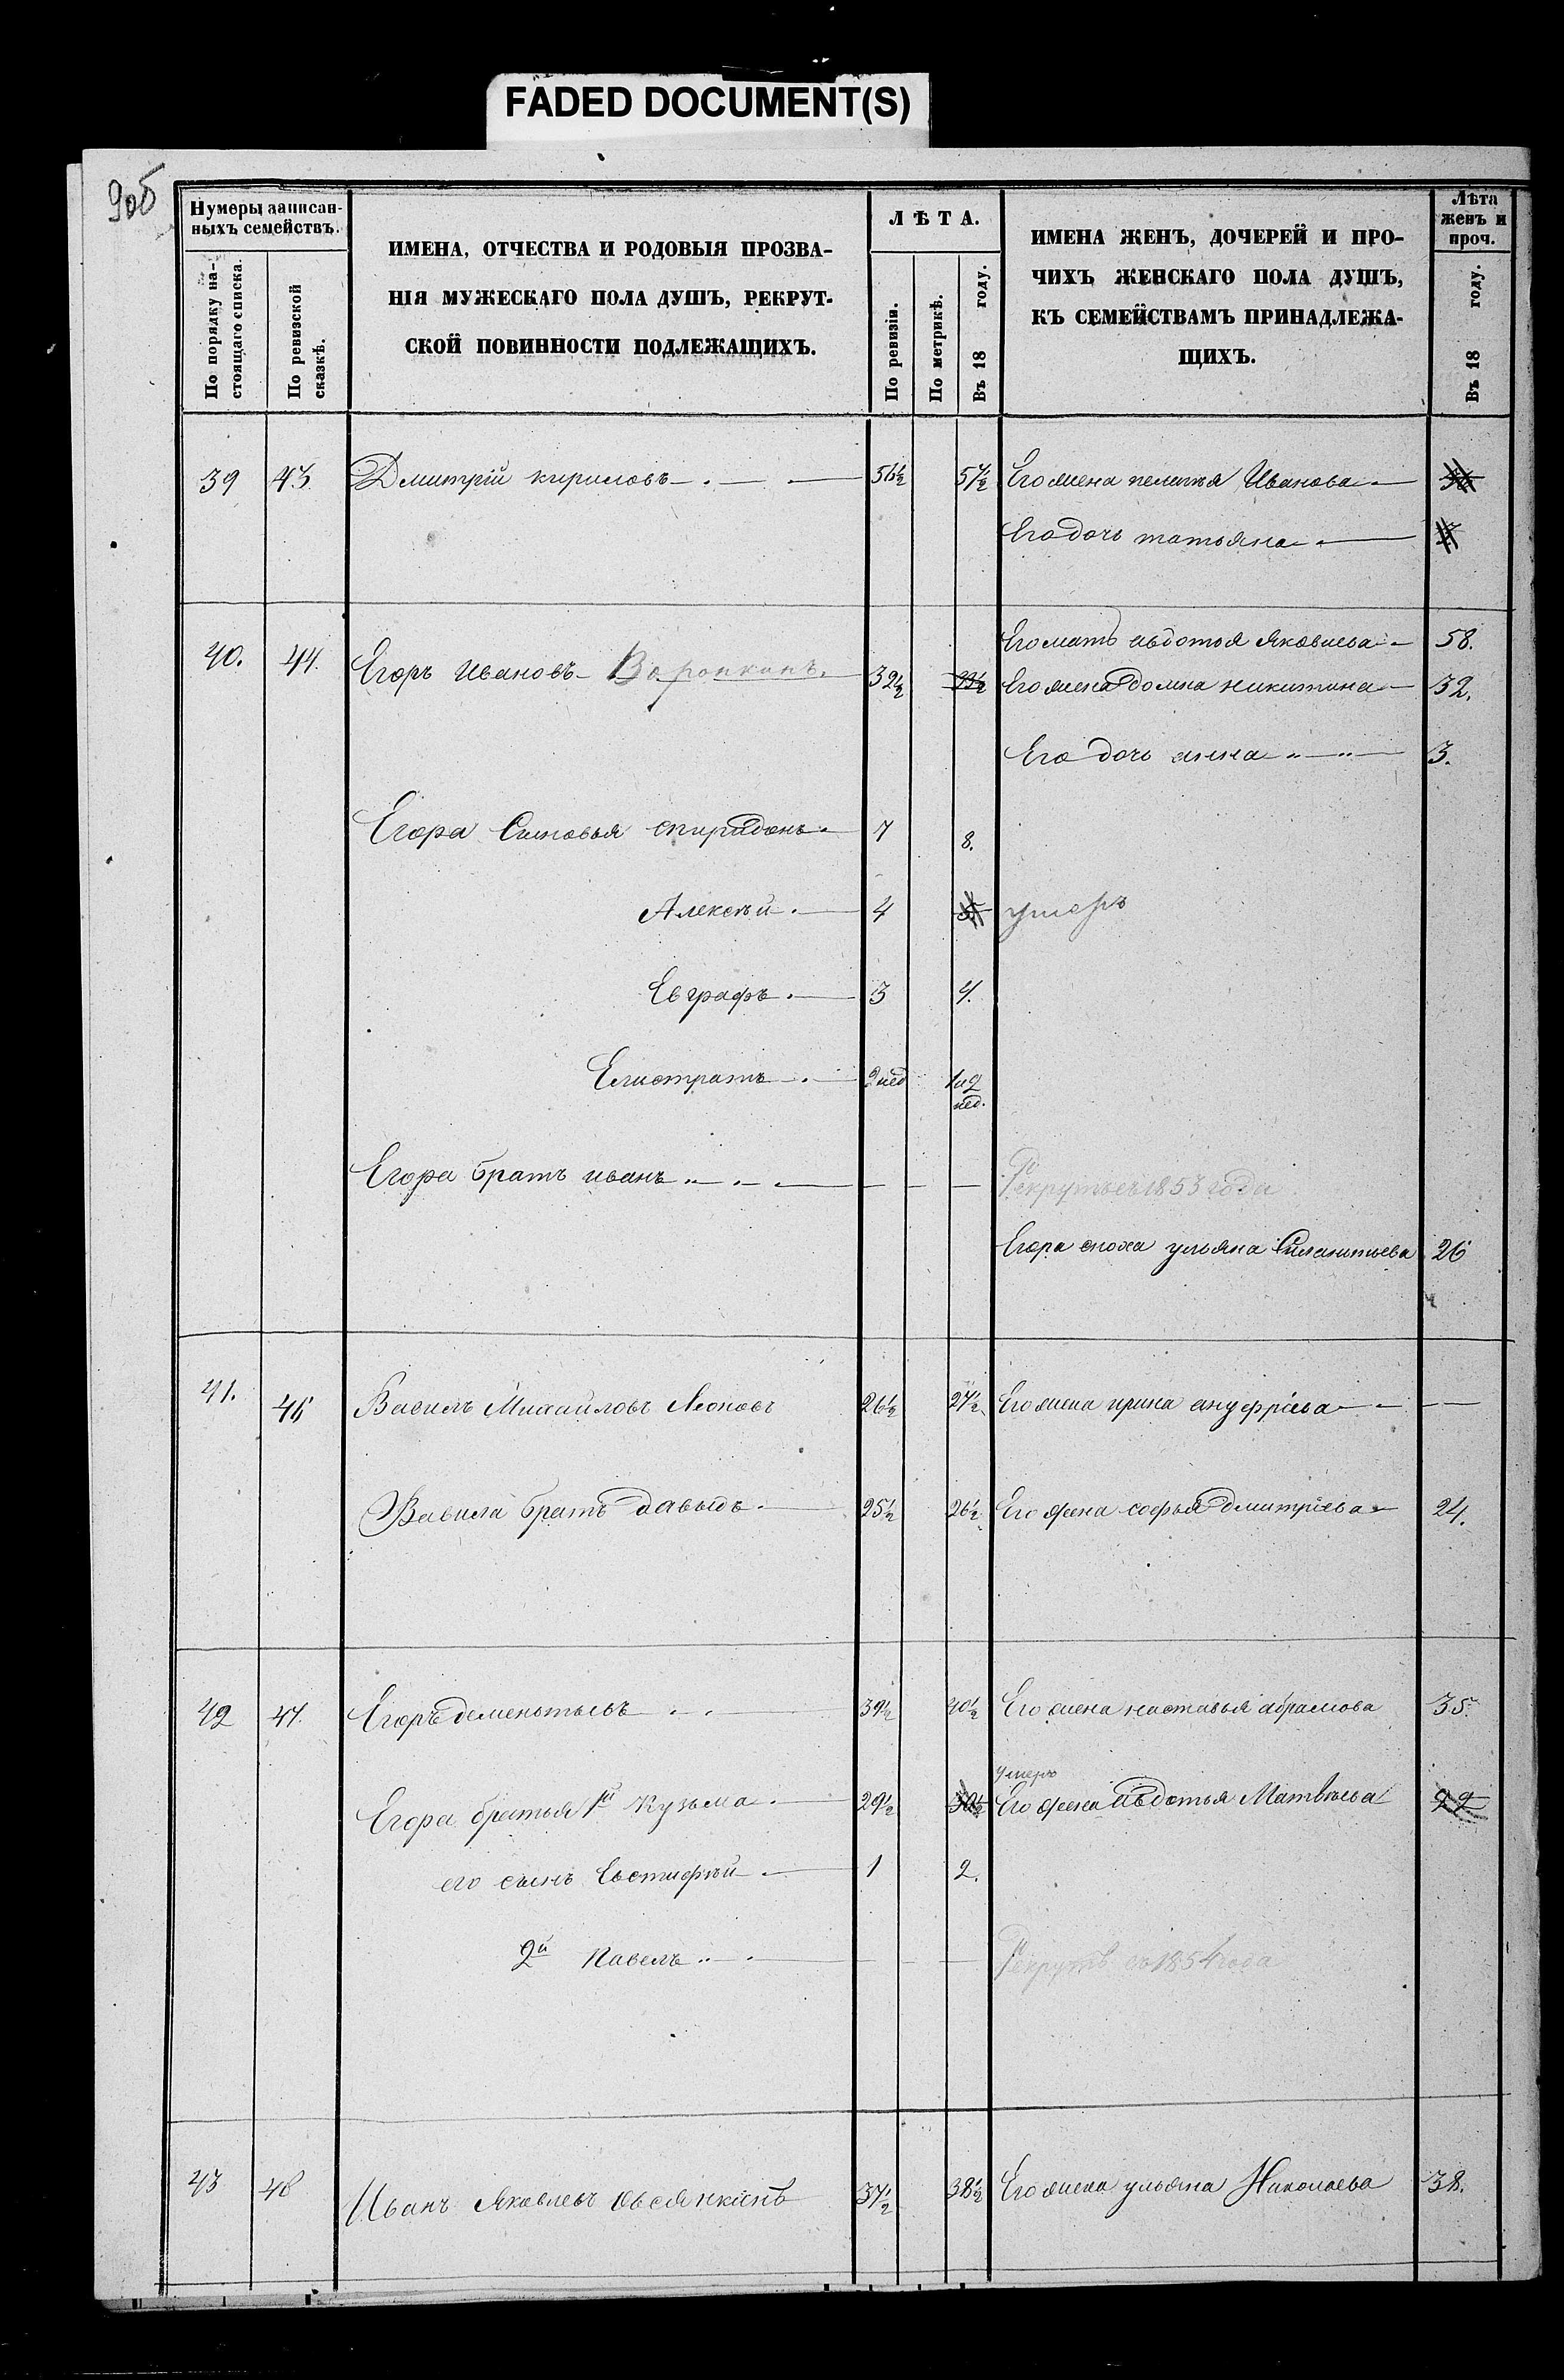 FADED DOCUMENT(S)
9об
Нумеры записан-
ныхъ семействъ.
По порядку на-
стоящаго списка.
По ревизской
сказкѣ.
ИМЕНА, ОТЧЕСТВА И РОДОВЫЯ ПРОЗВА-
НІЯ МУЖЕСКАГО ПОЛА ДУШЪ, РЕКРУТ-
СКОЙ ПОВИННОСТИ ПОДЛЕЖАЩИХЪ.
ЛѢТА.
По ревизіи.
По метрикѣ.
Въ 18 году.
ИМЕНА ЖЕНЪ, ДОЧЕРЕЙ И ПРО-
ЧИХЪ ЖЕНСКАГО ПОЛА ДУШЪ,
КЪ СЕМЕЙСТВАМЪ ПРИНАДЛЕЖА-
ЩИХЪ.
Лѣта
женъ и
проч.
Въ 18 году.
39 43 Дмитрій кириловъ 56½ 57½ Его жена пелагея Иванова
Его дочь татьяна
Его мать авдотья Яковлева 58.
40. 44. Егоръ Ивановъ Воронкинъ. 32½ 33½ Его жена домна никитина 32.
Его дочь анна 3.
Егора Сыновья спиридонъ 7 8.
Алексѣй 4 5 умеръ
Евграфъ 3 4.
Елистратъ 2 нед 1 и 2
нед.
Егора братъ иванъ Рекрутъ съ 1853 года
Егора сноха ульяна Силантьева 26
41. 46 Вавилъ Михайловъ Леоновъ 26½ 27½ Его жена ирина ануфріева
Вавила братъ давыдъ 25½ 26½ Его жена софья дмитріева 24.
42 47. Егоръ дементьевъ 39½ 40½ Его жена настасья абрамова 35.
умеръ
Егора братья 1й Кузьма 29½ 30½ Его жена авдотья Матвѣева 29
его сынъ Евстифѣй 1 2.
2й Павелъ Рекрутъ съ 1854 года
43 48 Иванъ Яковлевъ Овсянкинъ 37½ 38½ Его жена ульяна Николаева 38.